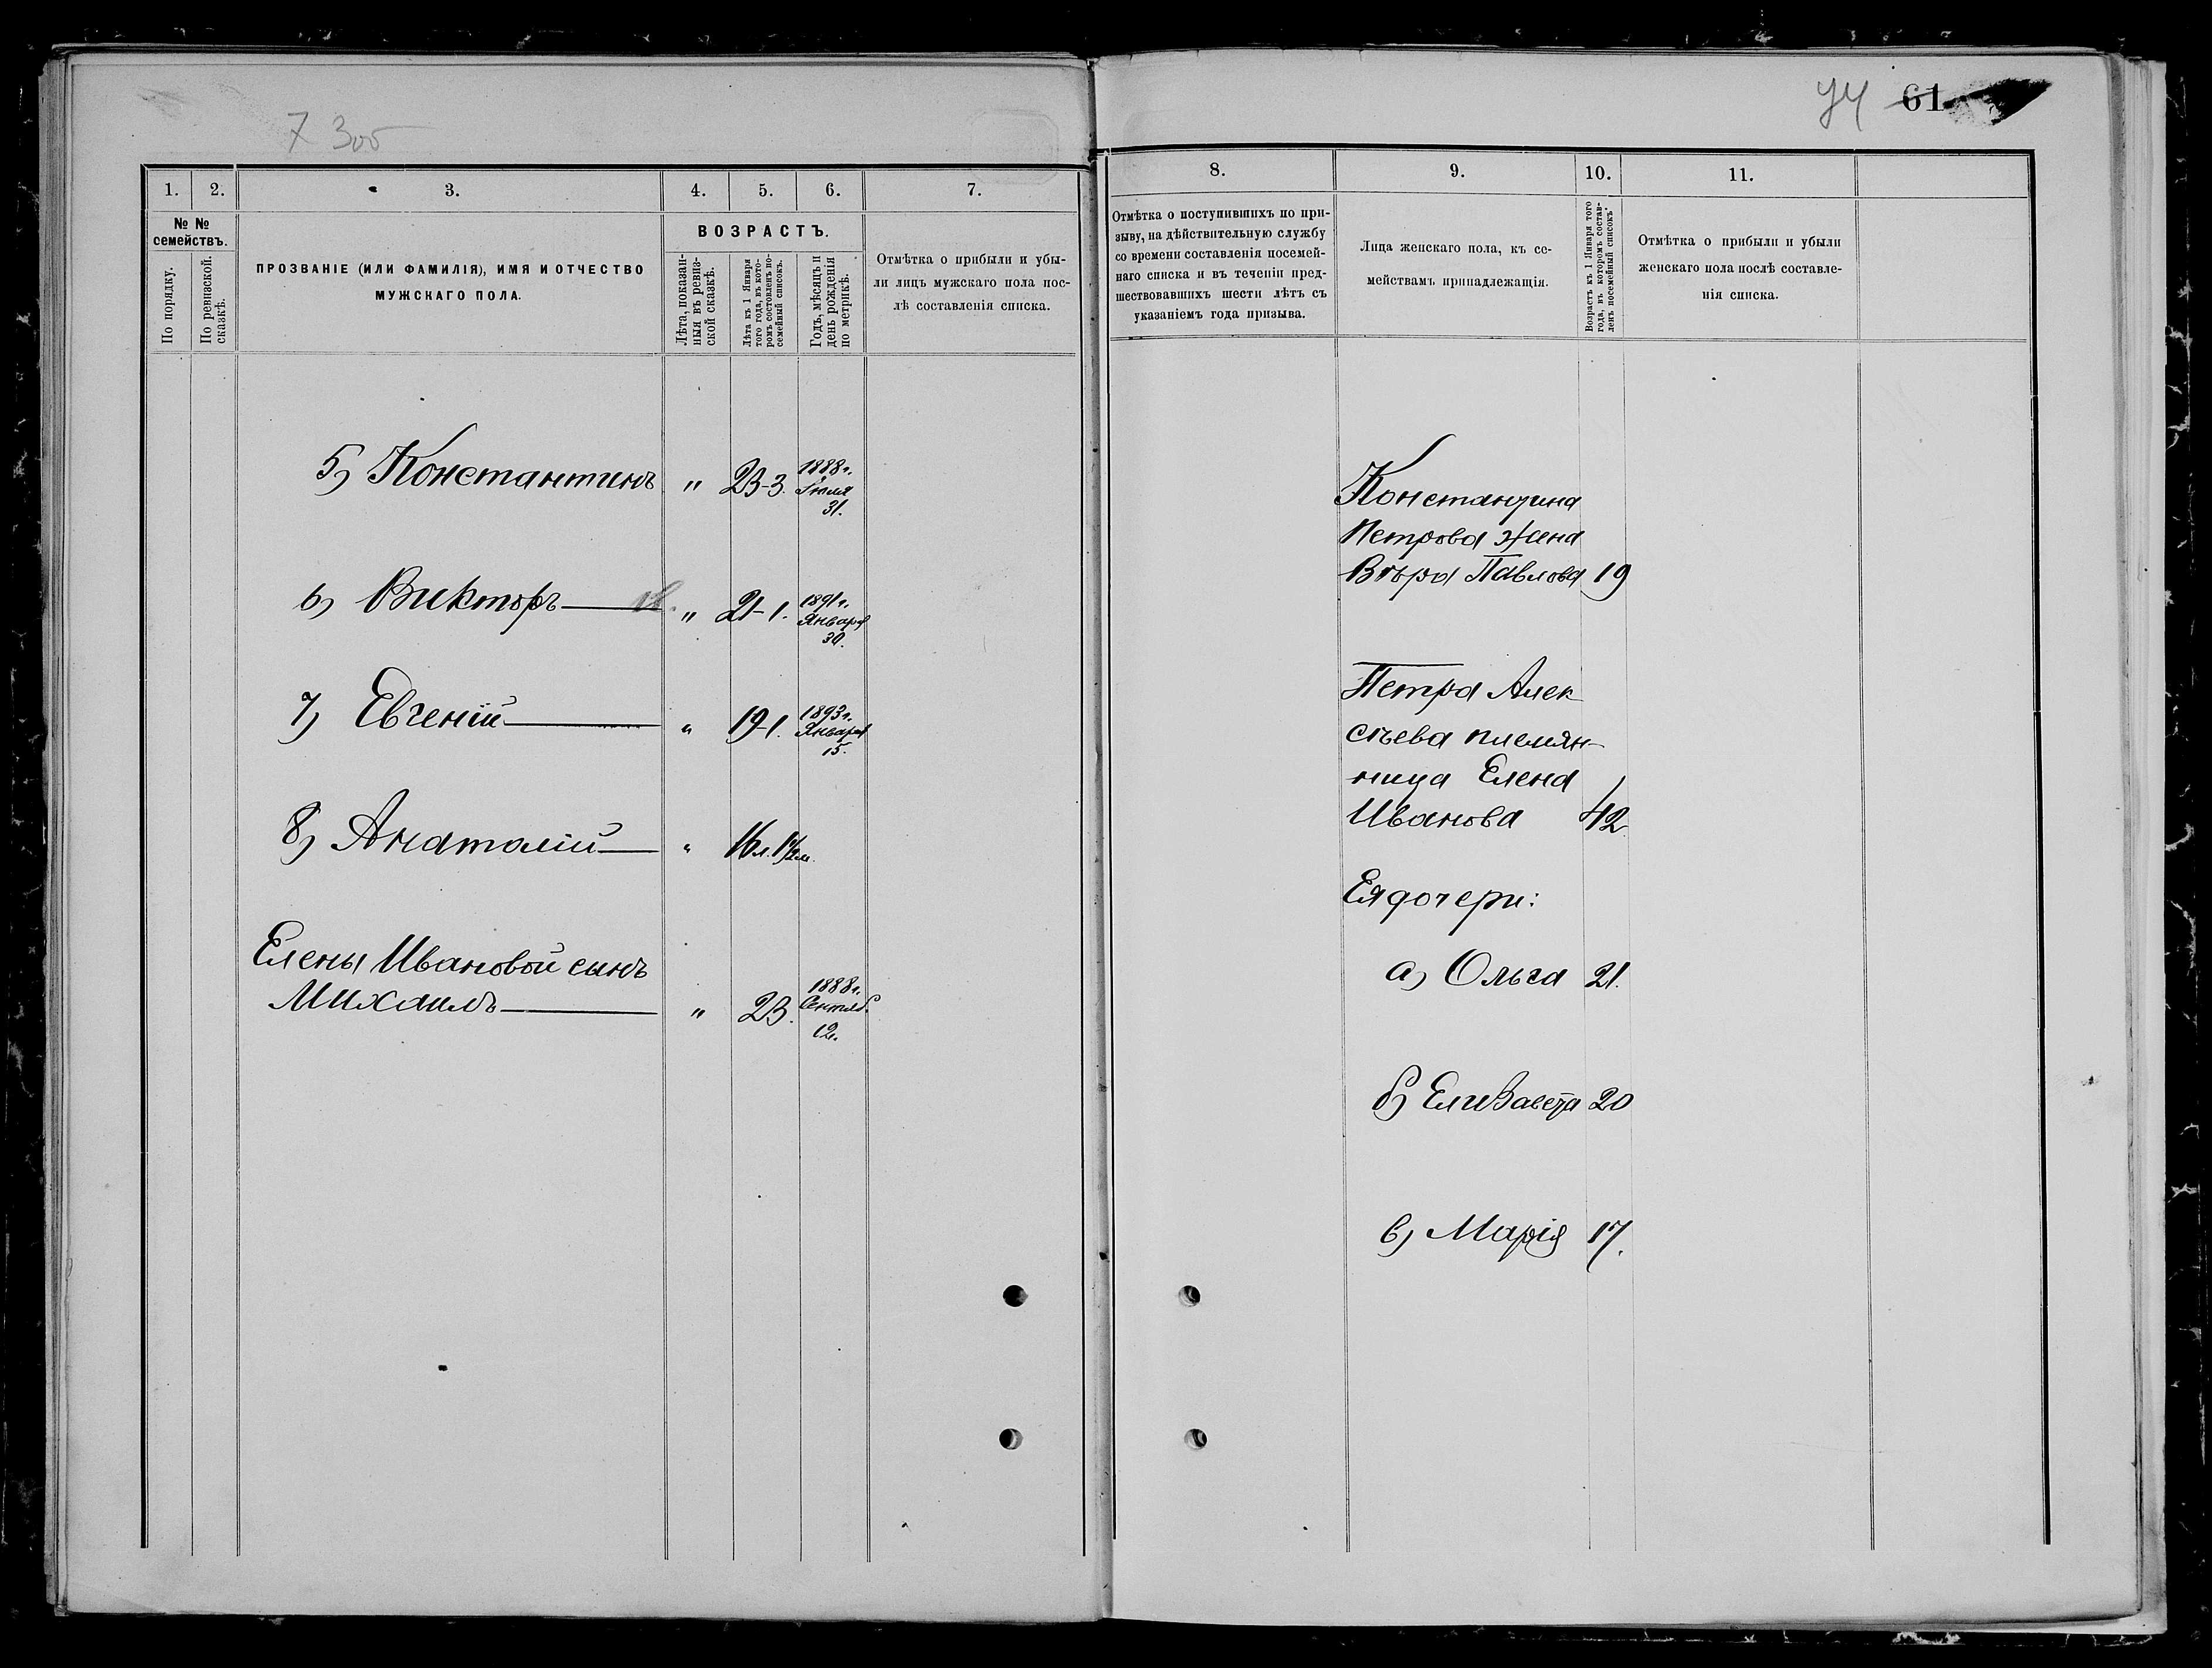 7 3об
1. 2. 3. 4. 5. 6. 7.
№ №
семействъ.
По порядку.
По ревизской.
сказкѣ.
ПРОЗВАНІЕ (ИЛИ ФАМИЛІЯ), ИМЯ И ОТЧЕСТВО
МУЖСКАГО ПОЛА.
ВОЗРАСТЪ.
Лѣта, показан-
ныя въ ревиз-
ской сказкѣ.
Лѣта къ 1 Января
того года, въ кото-
ромъ составленъ по-
семейный списокъ.
Годъ, мѣсяцъ и
день рожденія
по метрикѣ.
Отмѣтка о прибыли и убы-
ли лицъ мужскаго пола пос-
лѣ составленія списка.
5) Константинъ " 23-3. 1888г.
Іюля
31.
6) Викторъ " 21-1. 1891г.
Января
30.
7) Евгеній " 19-1. 1893г.
Января
15.
8) Анатолій " 16л. 1½м.
Елены Ивановой сынъ
Михаилъ " 23. 1888г.
Сентяб.
12.
61
8. 9. 10. 11.
Отмѣтка о поступившихъ по при-
зыву, на дѣйствительную службу
со времени составленія посемей-
наго списка и въ теченіи пред-
шествовавшихъ шести лѣтъ съ
указаніемъ года призыва.
Лица женскаго пола, къ се-
мействамъ принадлежащія.
Возрастъ къ 1 Января того
года, въ которомъ состав-
ленъ посемейный списокъ.
Отмѣтка о прибыли и убыли
женскаго пола послѣ составле-
нія списка.
Константина
Петрова жена
Вѣра Павлова 19
Петра Алек
сѣева племян-
ница Елена
Иванова 42
Ея дочери:
а) Ольга 21.
б) Елизавета 20
в) Марія 17.